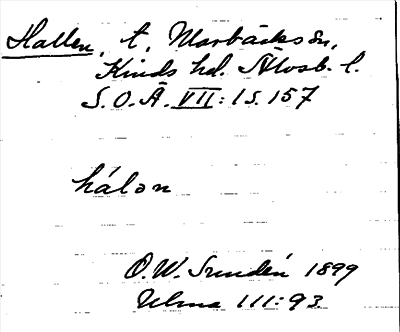 Hallen, t, Marbäcks sn,
Kinds hd. Älvsb. l.
S.O.Ä. VII:1 s. 157
hálon
O.W. Sundén 1899
Ulma 111:93